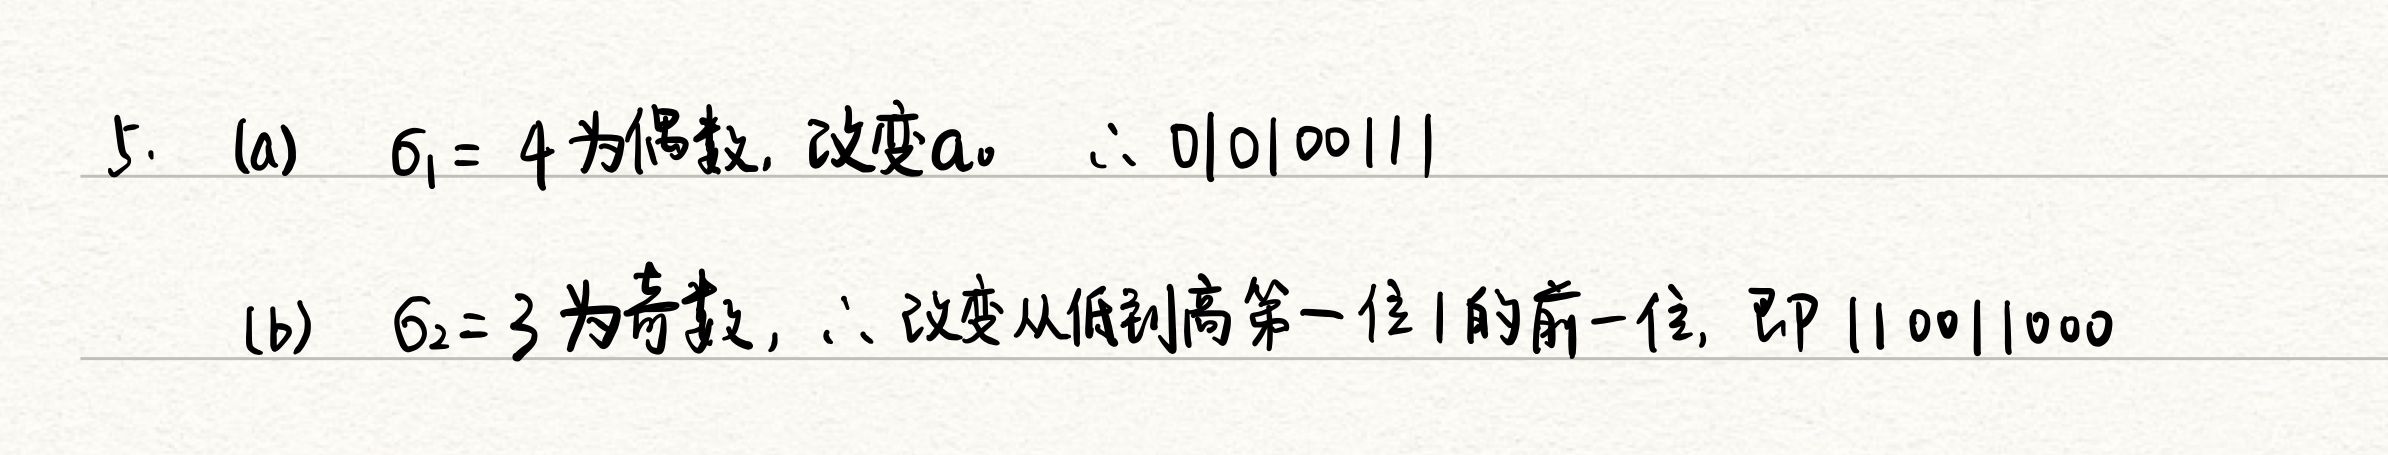 5. (a) σ₁ = 4 为偶数, 改变a₀ ∴ 010100111
(b) σ₂ = 3 为奇数, ∴ 改变从低到高第一位1的前一位, 即 110011000